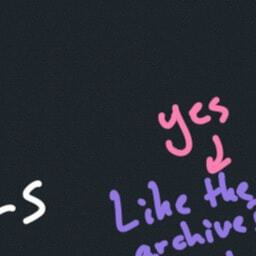 yes
s
Like the
archive